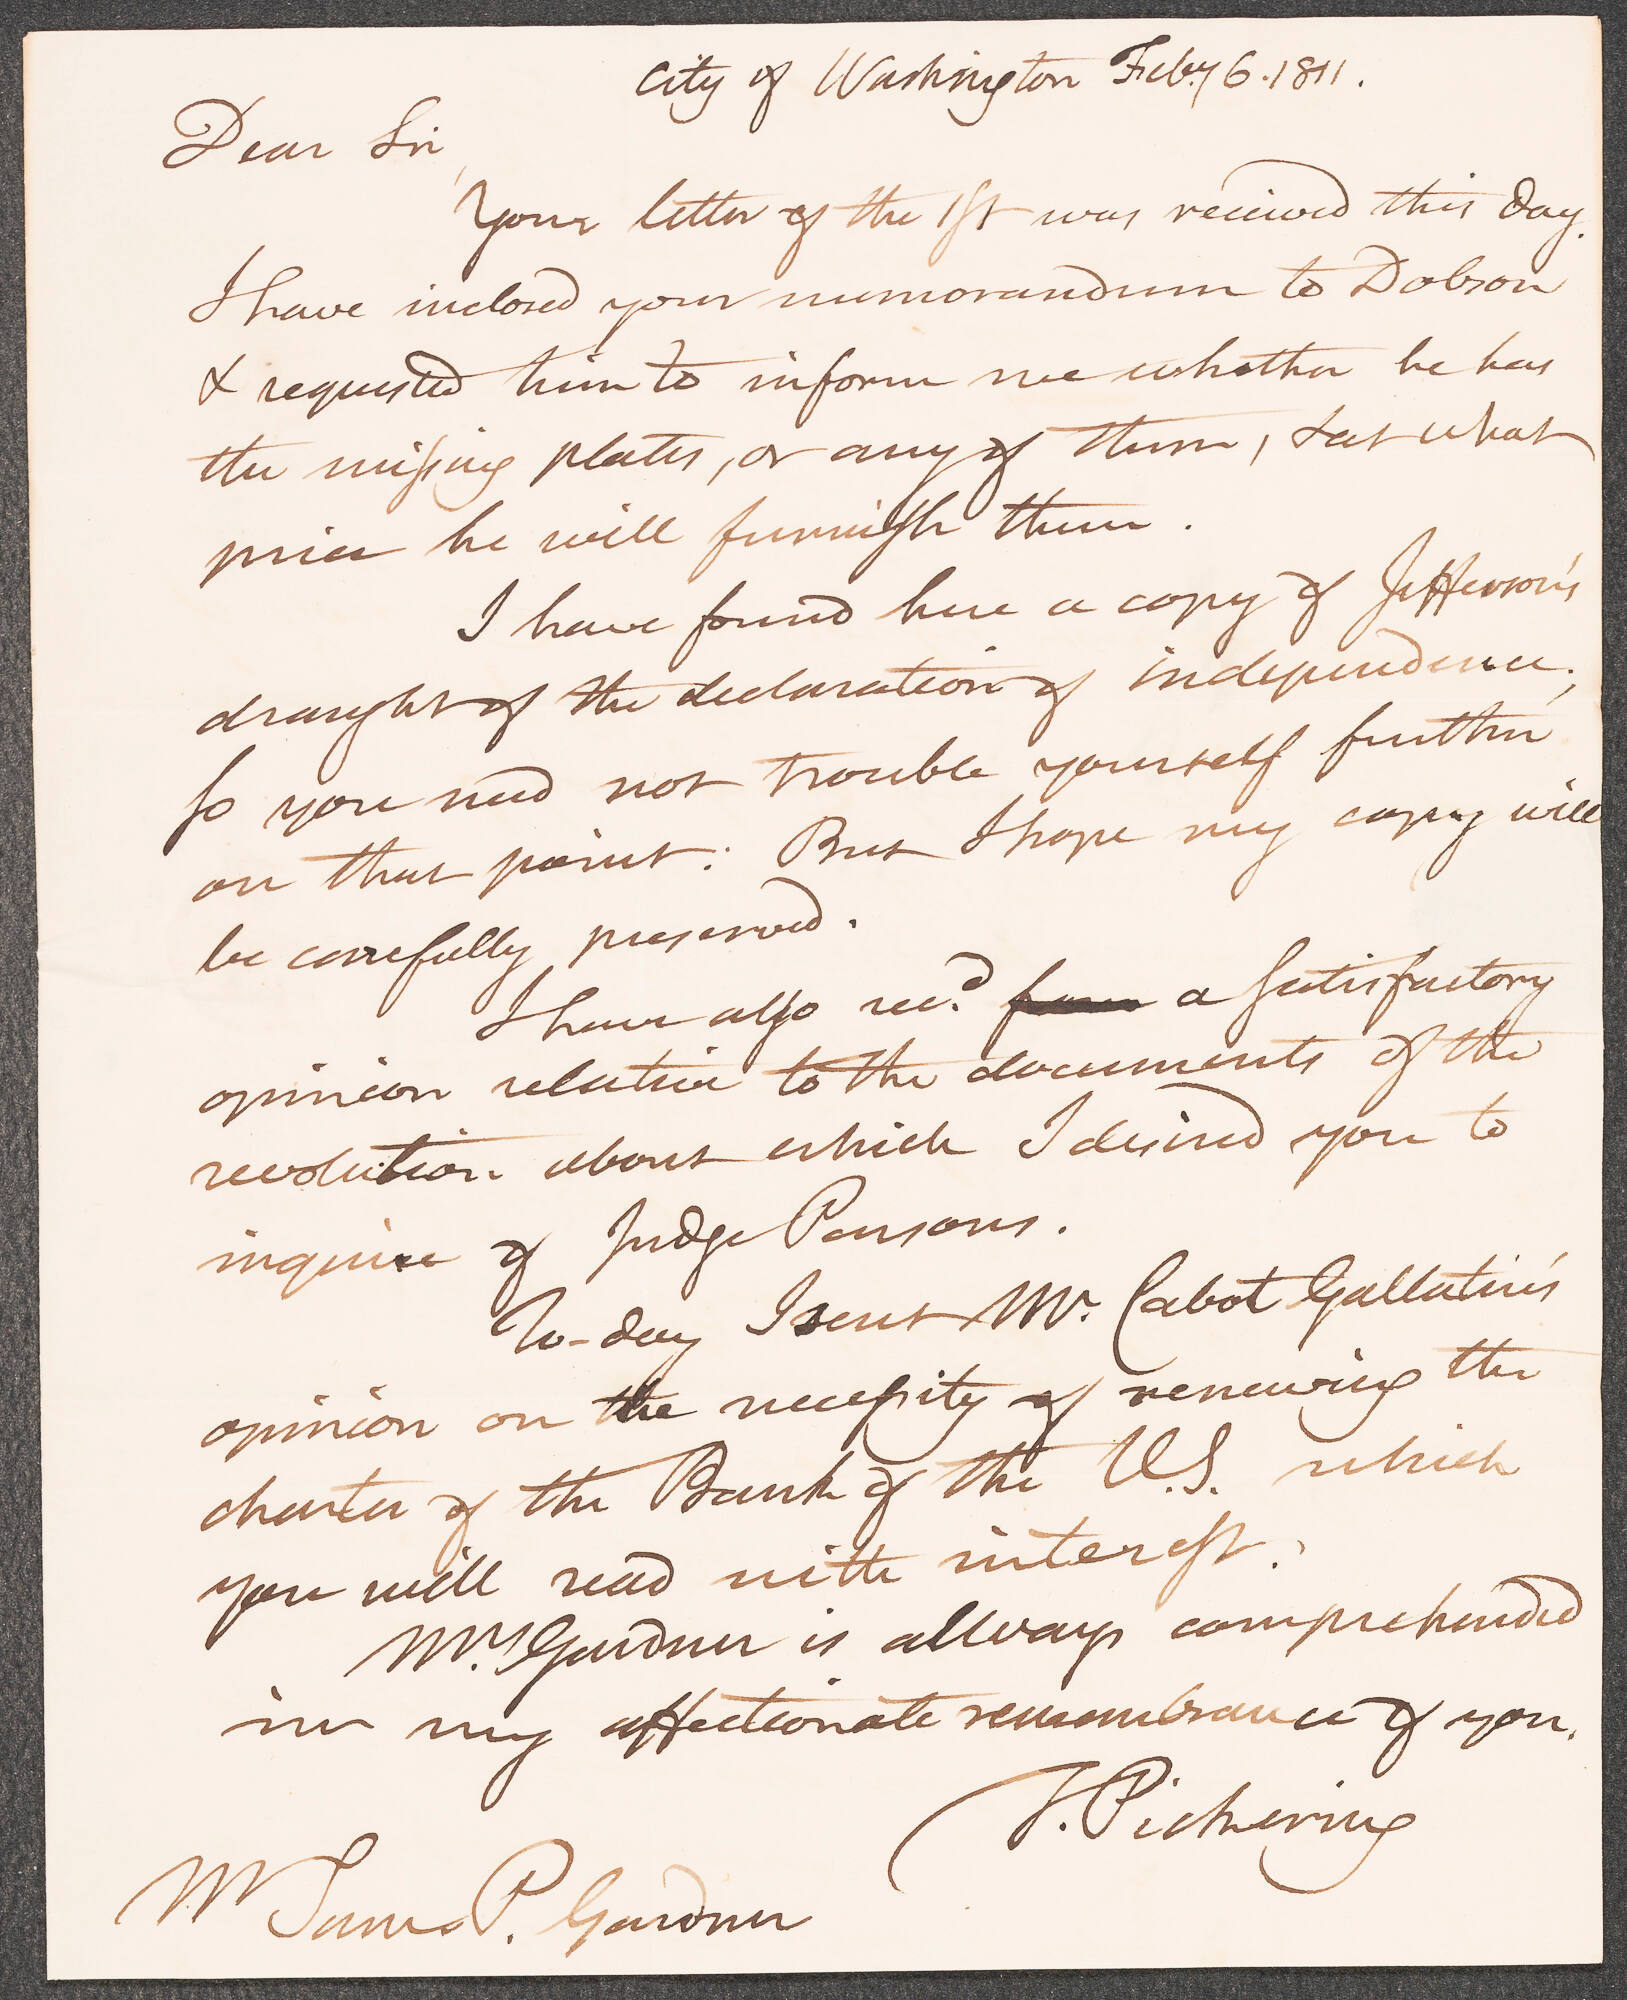 City of Washington Feby 6. 1811.
Dear Sir,
Your letter of the 1st was received this day.
I have inclosed your memorandum to Dobson
& requested him to inform me whether he has
the missing plates, or any of them, & at what
price he will furnish them.
I have found here a copy of Jefferson's
draught of the declaration of independence;
so you need not trouble yourself further
on that point: But I hope my copy will
be carefully preserved.
I have also recd. a satisfactory
opinion relative to the documents of the
revolution about which I desired you to
inquire of Judge Parsons.
To-day I sent Mr. Cabot Gallatin's
opinion on the necessity of renewing the
charter of the Bank of the U.S. which
you will read with interest.
Mrs. Gardner is allways comprehended
in my affectionate remembrance of you.
T. Pickering
Mr James P. Gardner